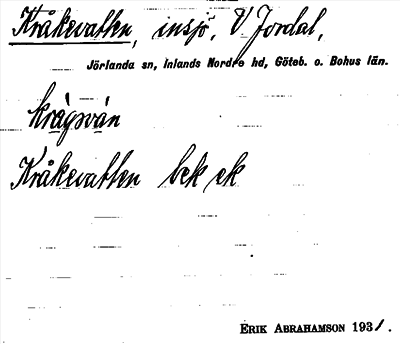 Kråkevatten, insjö, V Jordal,
Jörlanda sn, Inlands Nordre hd, Göteb. o. Bohus län.
krågván
Kråkevatten bek ek
ERIK ABRAHAMSON 1931.